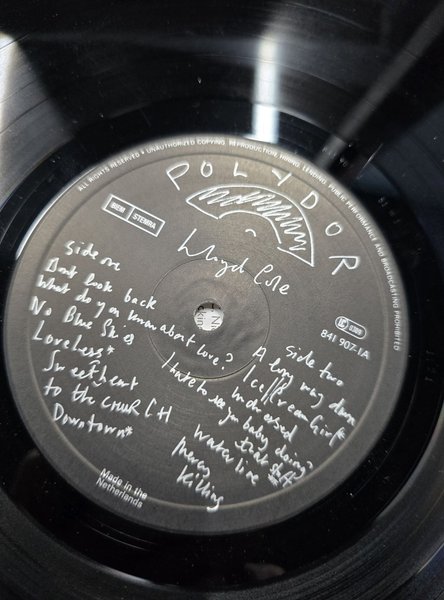 ALL RIGHTS RESERVED • UNAUTHORIZED COPYING, REPRODUCTION, HIRING, LENDING, PUBLIC PERFORMANCE AND BROADCASTING PROHIBITED
POLYDOR
BIEM
STEMRA
Lloyd Cole
LC 0309
841 907-1A
Side one
Dont look back
What do you know about love?
No Blue Skies
Loveless*
Sweetheart
to the CHURCH
Downtown*
Side two
A long way down
Ice Cream Girl*
Undressed
I hate to see you baby doing
that stuff
Waterline
Mercy
Killing
Made in the
Netherlands